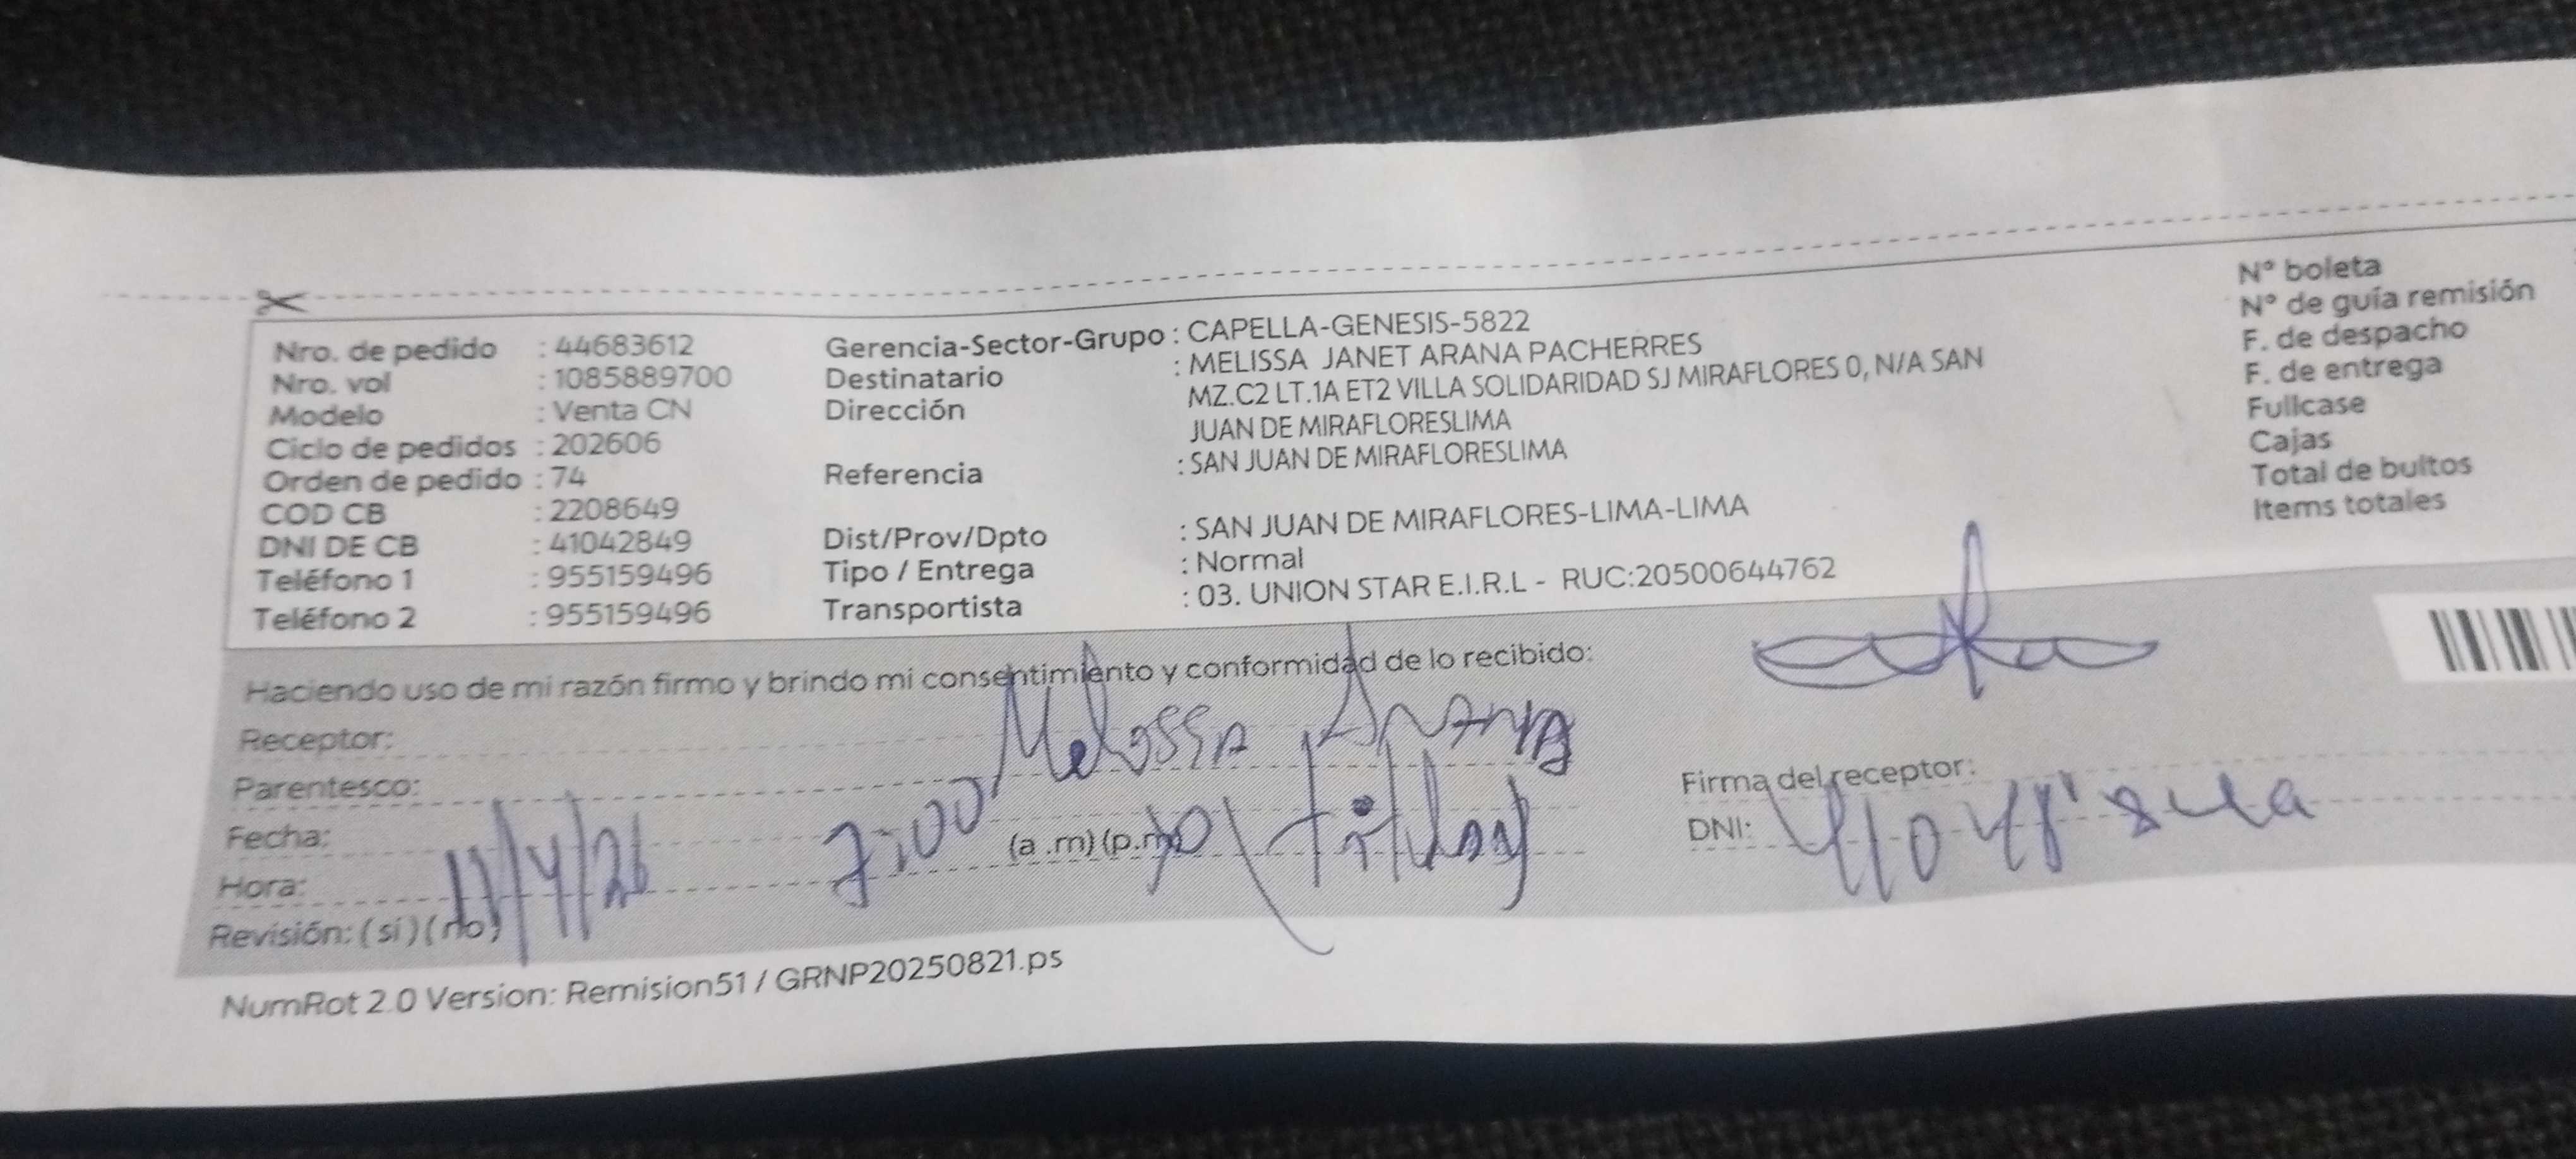 Nro. de pedido : 44683612
Nro. vol : 1085889700
Modelo : Venta CN
Ciclo de pedidos : 202606
Orden de pedido : 74
COD CB : 2208649
DNI DE CB : 41042849
Teléfono 1 : 955159496
Teléfono 2 : 955159496
Gerencia-Sector-Grupo : CAPELLA-GENESIS-5822
Destinatario : MELISSA JANET ARANA PACHERRES
Dirección MZ.C2 LT.1A ET2 VILLA SOLIDARIDAD SJ MIRAFLORES 0, N/A SAN
JUAN DE MIRAFLORESLIMA
Referencia : SAN JUAN DE MIRAFLORESLIMA
Dist/Prov/Dpto : SAN JUAN DE MIRAFLORES-LIMA-LIMA
Tipo / Entrega : Normal
Transportista : 03. UNION STAR E.I.R.L - RUC:20500644762
N° boleta
N° de guía remisión
F. de despacho
F. de entrega
Fullcase
Cajas
Total de bultos
Items totales
Haciendo uso de mi razón firmo y brindo mi consentimiento y conformidad de lo recibido:
Receptor: Melissa Arana
Parentesco:
Fecha: 11/4/26
Hora: 7:00 (a .m) (p.m)
Revisión: (si) (no)
Firma del receptor:
DNI:
NumRot 2.0 Version: Remision51 / GRNP20250821.ps